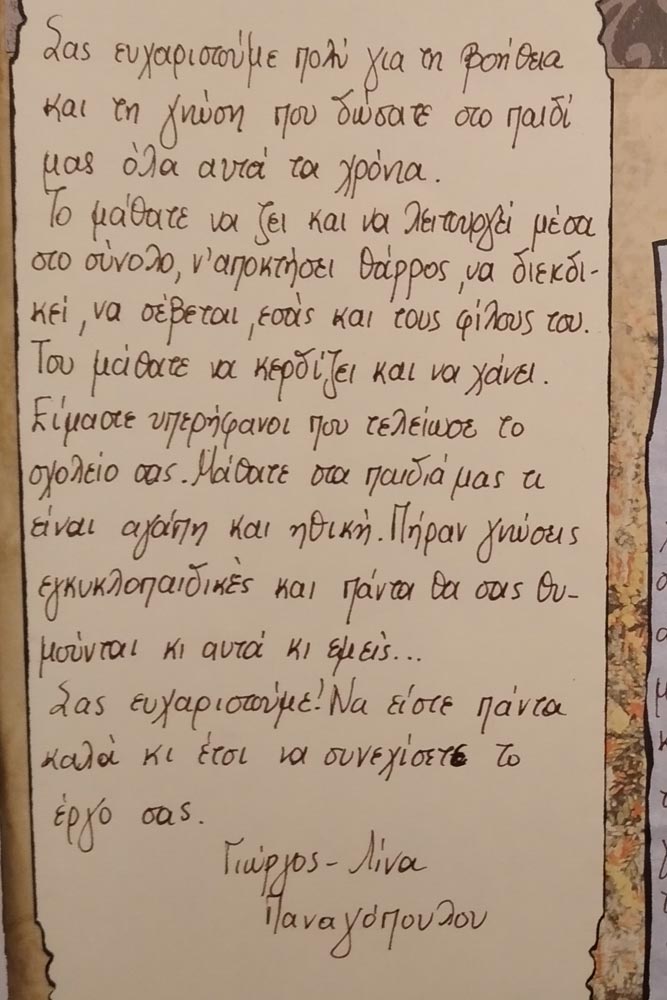 Σας ευχαριστούμε πολύ για τη βοήθεια
και τη γνώση που δώσατε στο παιδί
μας όλα αυτά τα χρόνια.
Το μάθατε να ζει και να λειτουργεί μέσα
στο σύνολο, ν'αποκτήσει θάρρος, να διεκδι-
κεί, να σέβεται, εσάς και τους φίλους του.
Του μάθατε να κερδίζει και να χάνει.
Είμαστε υπερήφανοι που τελείωσε το
σχολείο σας. Μάθατε στα παιδιά μας τι
είναι αγάπη και ηθική. Πήραν γνώσεις
εγκυκλοπαιδικές και πάντα θα σας θυ-
μούνται κι αυτά κι εμείς...
Σας ευχαριστούμε! Να είστε πάντα
καλά κι έτσι να συνεχίσετε το
έργο σας.
Γιώργος - Λίνα
Παναγόπουλου